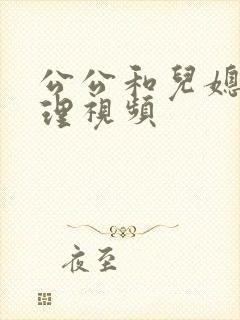 公公和兒媳
理視頻
夜至